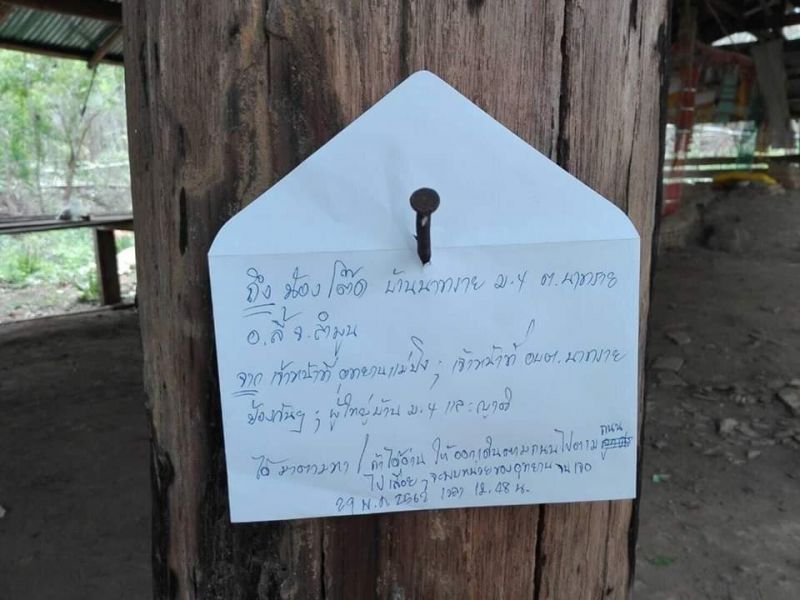 ถึง น้อง โต๊ด บ้านนาทราย ม.4 ต.นาทราย
อ.ลี้ จ.ลำพูน
จาก เจ้าหน้าที่ อุทยานแม่ปิง ; เจ้าหน้าที่ อบต.นาทราย
; ผู้ใหญ่บ้าน ม.4 และญาติ
ได้มาตามหา / ถ้าได้อ่าน ให้ออกเดินตามถนนไปตาม ถนน
ไปเรื่อยๆ จะพบหน่วยของอุทยาน
29 พ.ค. เวลา 12.48 น.